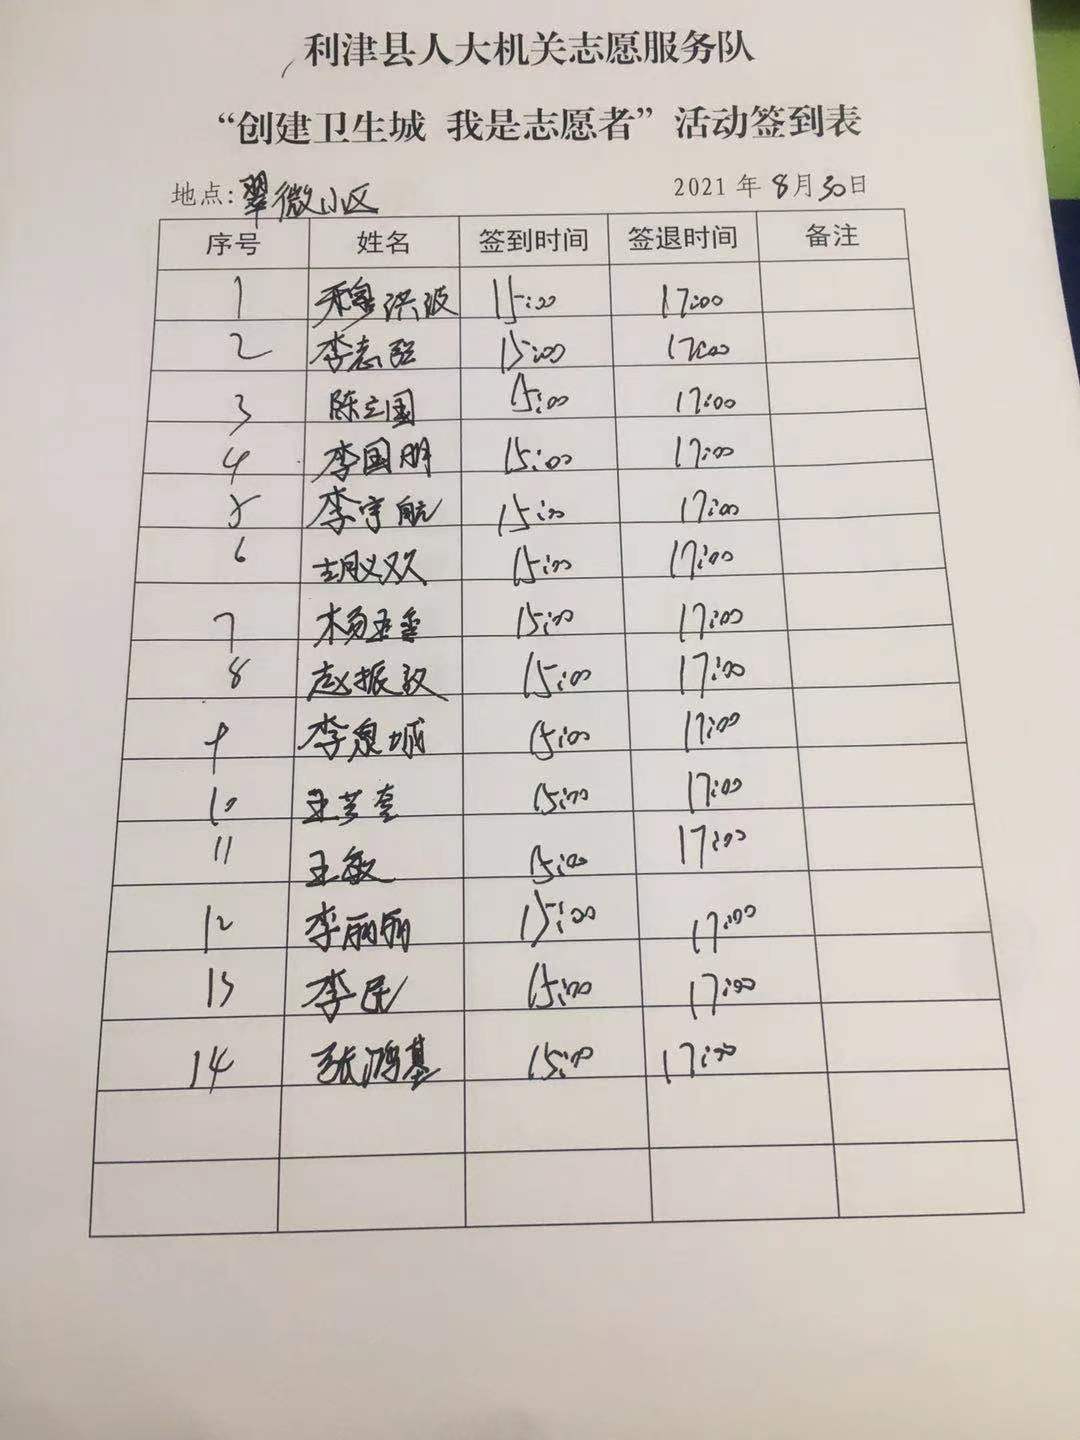 利津县人大机关志愿服务队
“创建卫生城 我是志愿者”活动签到表
地点:翠微小区 2021年8月30日
序号 姓名 签到时间 签退时间 备注
1 穆洪波 15:00 17:00
2 李志强 15:00 17:00
3 陈立国 15:00 17:00
4 李国朋 15:00 17:00
5 李宇航 15:00 17:00
6 胡双双 15:00 17:00
7 15:00 17:00
8 赵振 15:00 17:00
9 李泉城 15:00 17:00
10 15:00 17:00
11 王敏 15:00 17:00
12 李丽丽 15:00 17:00
13 李民 15:00 17:00
14 张鸿基 15:00 17:00